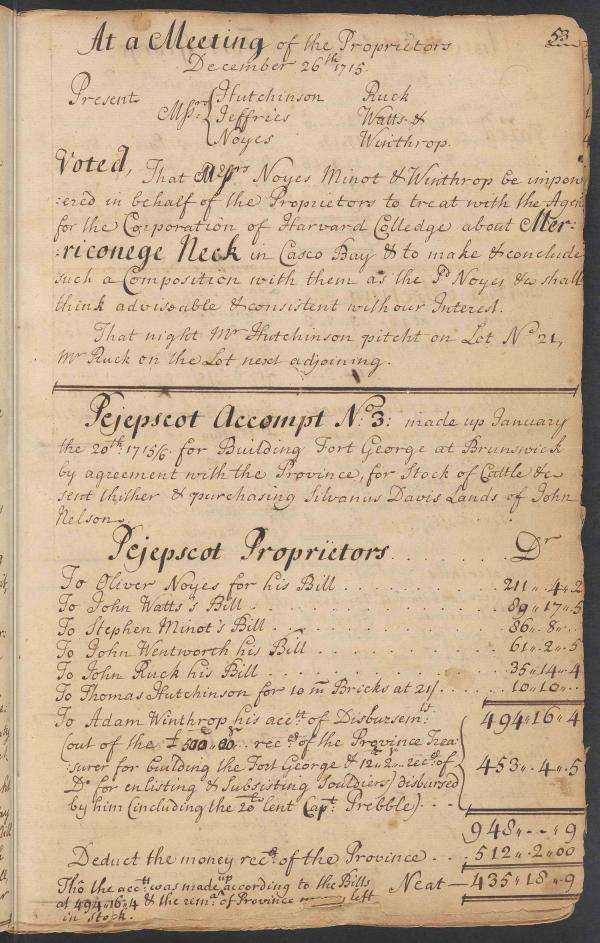 53
At a Meeting of the Proprietors
December 26th 1715.
Present
Hutchinson Ruck
Mssrs Jeffries Watts &
Noyes Winthrop.
Voted, That Mssrs Noyes Minot & Winthrop be impow
:ered in behalf of the Proprietors to treat with the Agen
for the Corporation of Harvard Colledge about Mer:
:riconege Neck in Casco Bay & to make & conclude
such a Composition with them as the sd Noyes &c shall
think adviseable & consistent with our Interest.
That night Mr Hutchinson pitcht on Lot No 21,
Mr Ruck on the Lot next adjoining.
Pejepscot Accompt No 3: made up January
the 20th: 1715/6. for Building Fort George at Brunswick
by agreement with the Province, for Stock of Cattle &c
sent thither & purchasing Silvanus Davis Lands of John
Nelson.
Pejepscot Proprietors . . . . . Dr
To Oliver Noyes for his Bill . . . . . . . 211 „ 4 „ 2
To John Watts's Bill . . . . . . . . . . 89 „ 17 „ 5
To Stephen Minot's Bill . . . . . . . . . 86 „ 8 „ ..
To John Wentworth his Bill . . . . . . . 61 „ 2 „ 5
To John Ruck his Bill . . . . . . . . . . 35 „ 14 „ 4
To Thomas Hutchinson for 10 m Bricks at 21/ . . . . 10 „ 10 „ ..
To Adam Winthrop his acctt of Disbursemtt 494 „ 16 „ 4
(out of the £500 .. recd of the Province Trea:
:surer for building the Fort George & 12 „ 2 .. recd of 453 „ 4 „ 5
Do for enlisting & Subsisting Souldiers) disbursed
by him (including the 20£ lent Capt Prebble) . . .
948 „ - - „ 9
Deduct the money recd of the Province . . . 512 „ 2 „ 00
Neat — 435 „ 18 „ 9
Tho the acctt was made up according to the Bills
at 494 „ 16 „ 4 & the remar of Province left
in stock.